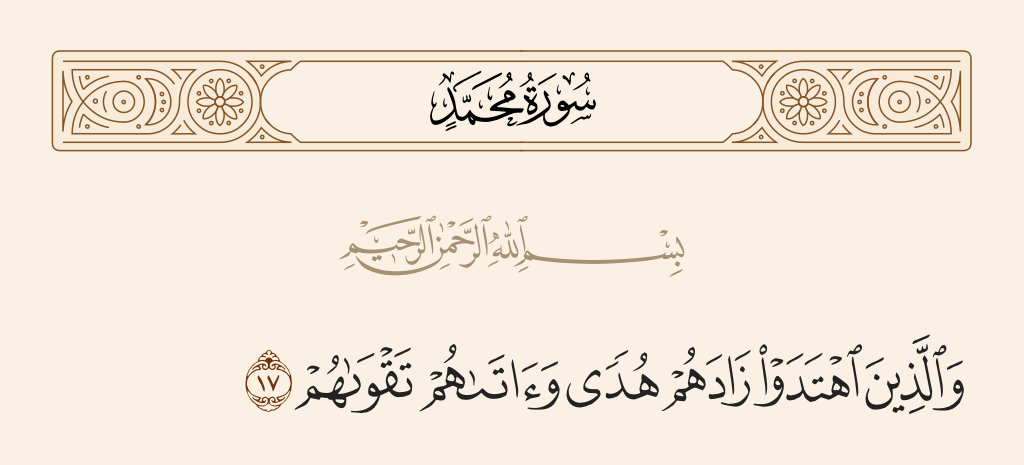 سُورَةُ مُحَمَّدٍ
بِسْمِ ٱللَّهِ ٱلرَّحْمَٰنِ ٱلرَّحِيمِ
وَٱلَّذِينَ ٱهْتَدَوْا۟ زَادَهُمْ هُدًى وَءَاتَىٰهُمْ تَقْوَىٰهُمْ ١٧